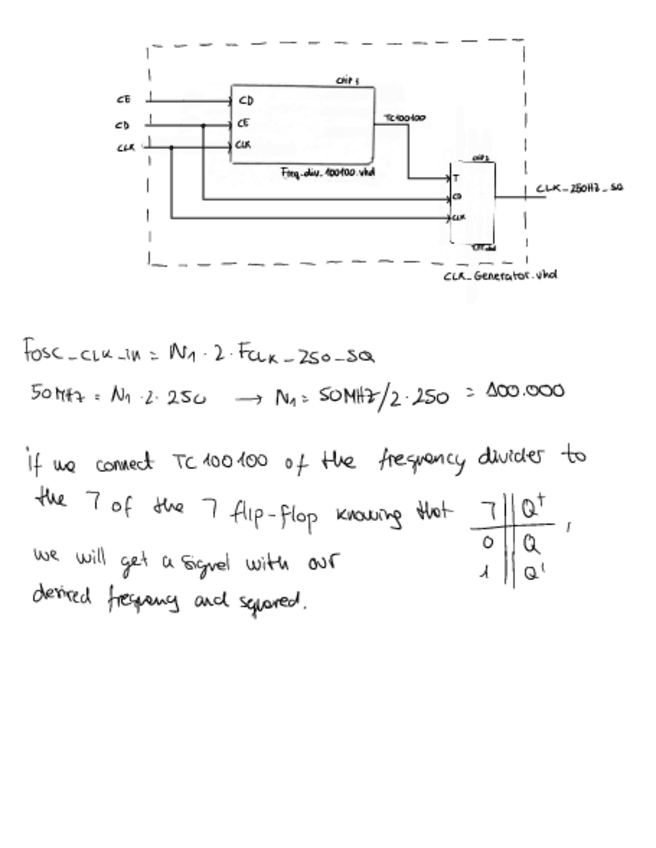 Chip1
CE
CD
CLK
CD
CE
CLK
TC100100
Freq_div_100100.vhd
Chip2
T
CD
CLK
CLK_250HZ_SQ
CLK_Generator.vhd
Fosc_CLK_in = N1 · 2 · FCLK_250_SQ
50MHz = N1 · 2 · 250 → N1 = 50MHz/2·250 = 100.000
if we connect TC100100 of the frequency divider to
the T of the T flip-flop knowing that
T Q+
0 Q
1 Q' ,
we will get a signal with our
desired frequency and squared.